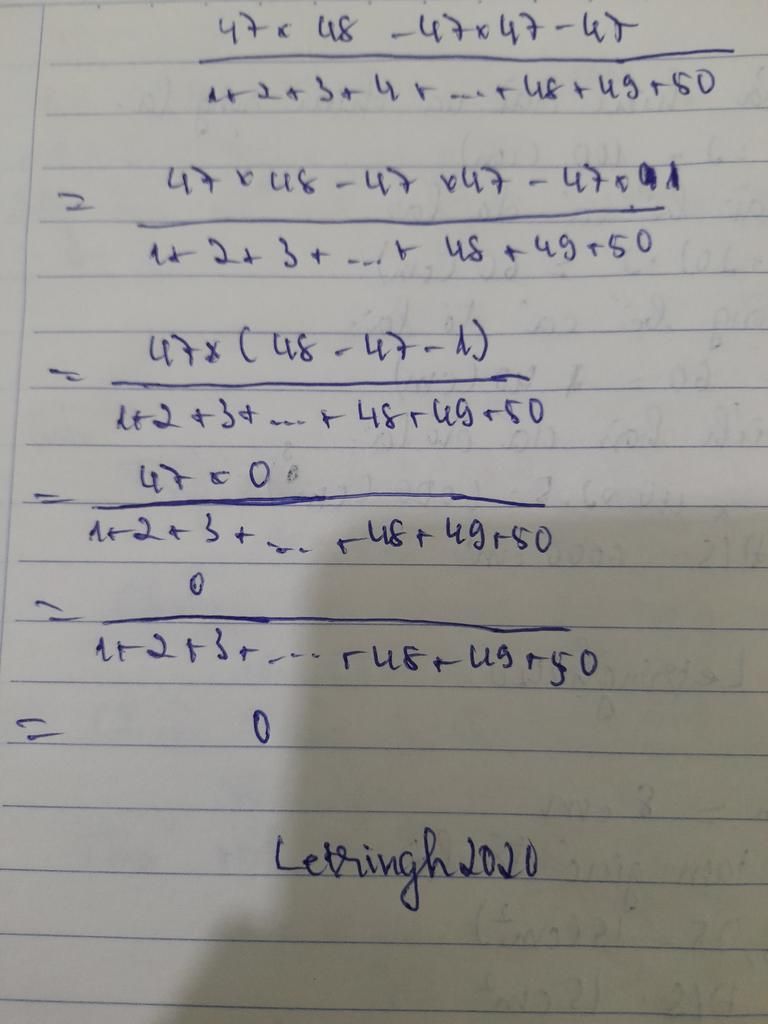 47 × 48 - 47 × 47 - 47
1 + 2 + 3 + 4 + ... + 48 + 49 + 50
= 47 × 48 - 47 × 47 - 47 × 1
1 + 2 + 3 + ... + 48 + 49 + 50
= 47 × (48 - 47 - 1)
1 + 2 + 3 + ... + 48 + 49 + 50
= 47 × 0
1 + 2 + 3 + ... + 48 + 49 + 50
= 0
1 + 2 + 3 + ... + 48 + 49 + 50
= 0
Letringh2020